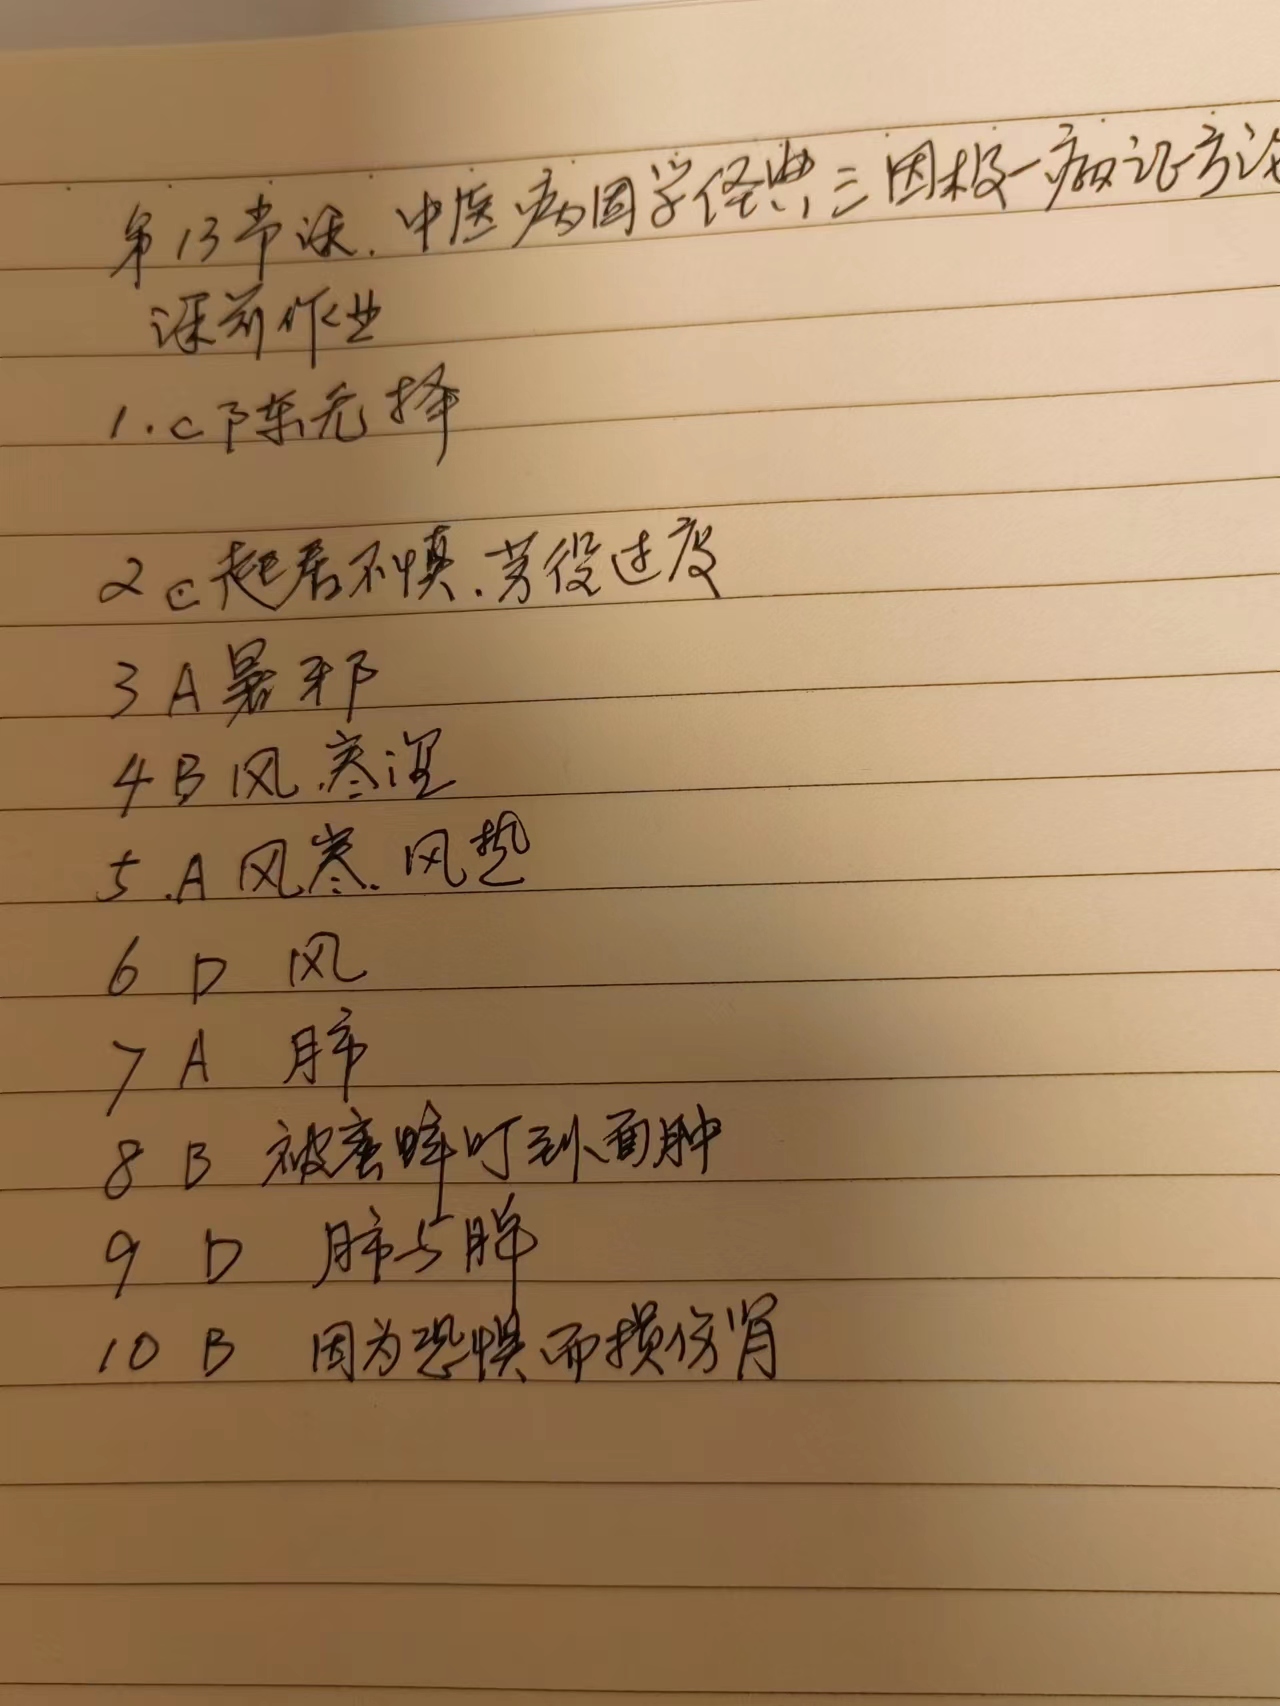 第13节课.中医病因学经典,三因极一病证方论
课前作业
1.C 陈无择
2 C 起居不慎.劳役过度
3 A 暑邪
4 B 风.寒湿
5.A 风寒.风热
6 D 风
7 A 肺
8 B 被蜜蜂叮到、面肿
9 D 肺与脾
10 B 因为恐惧而损伤肾